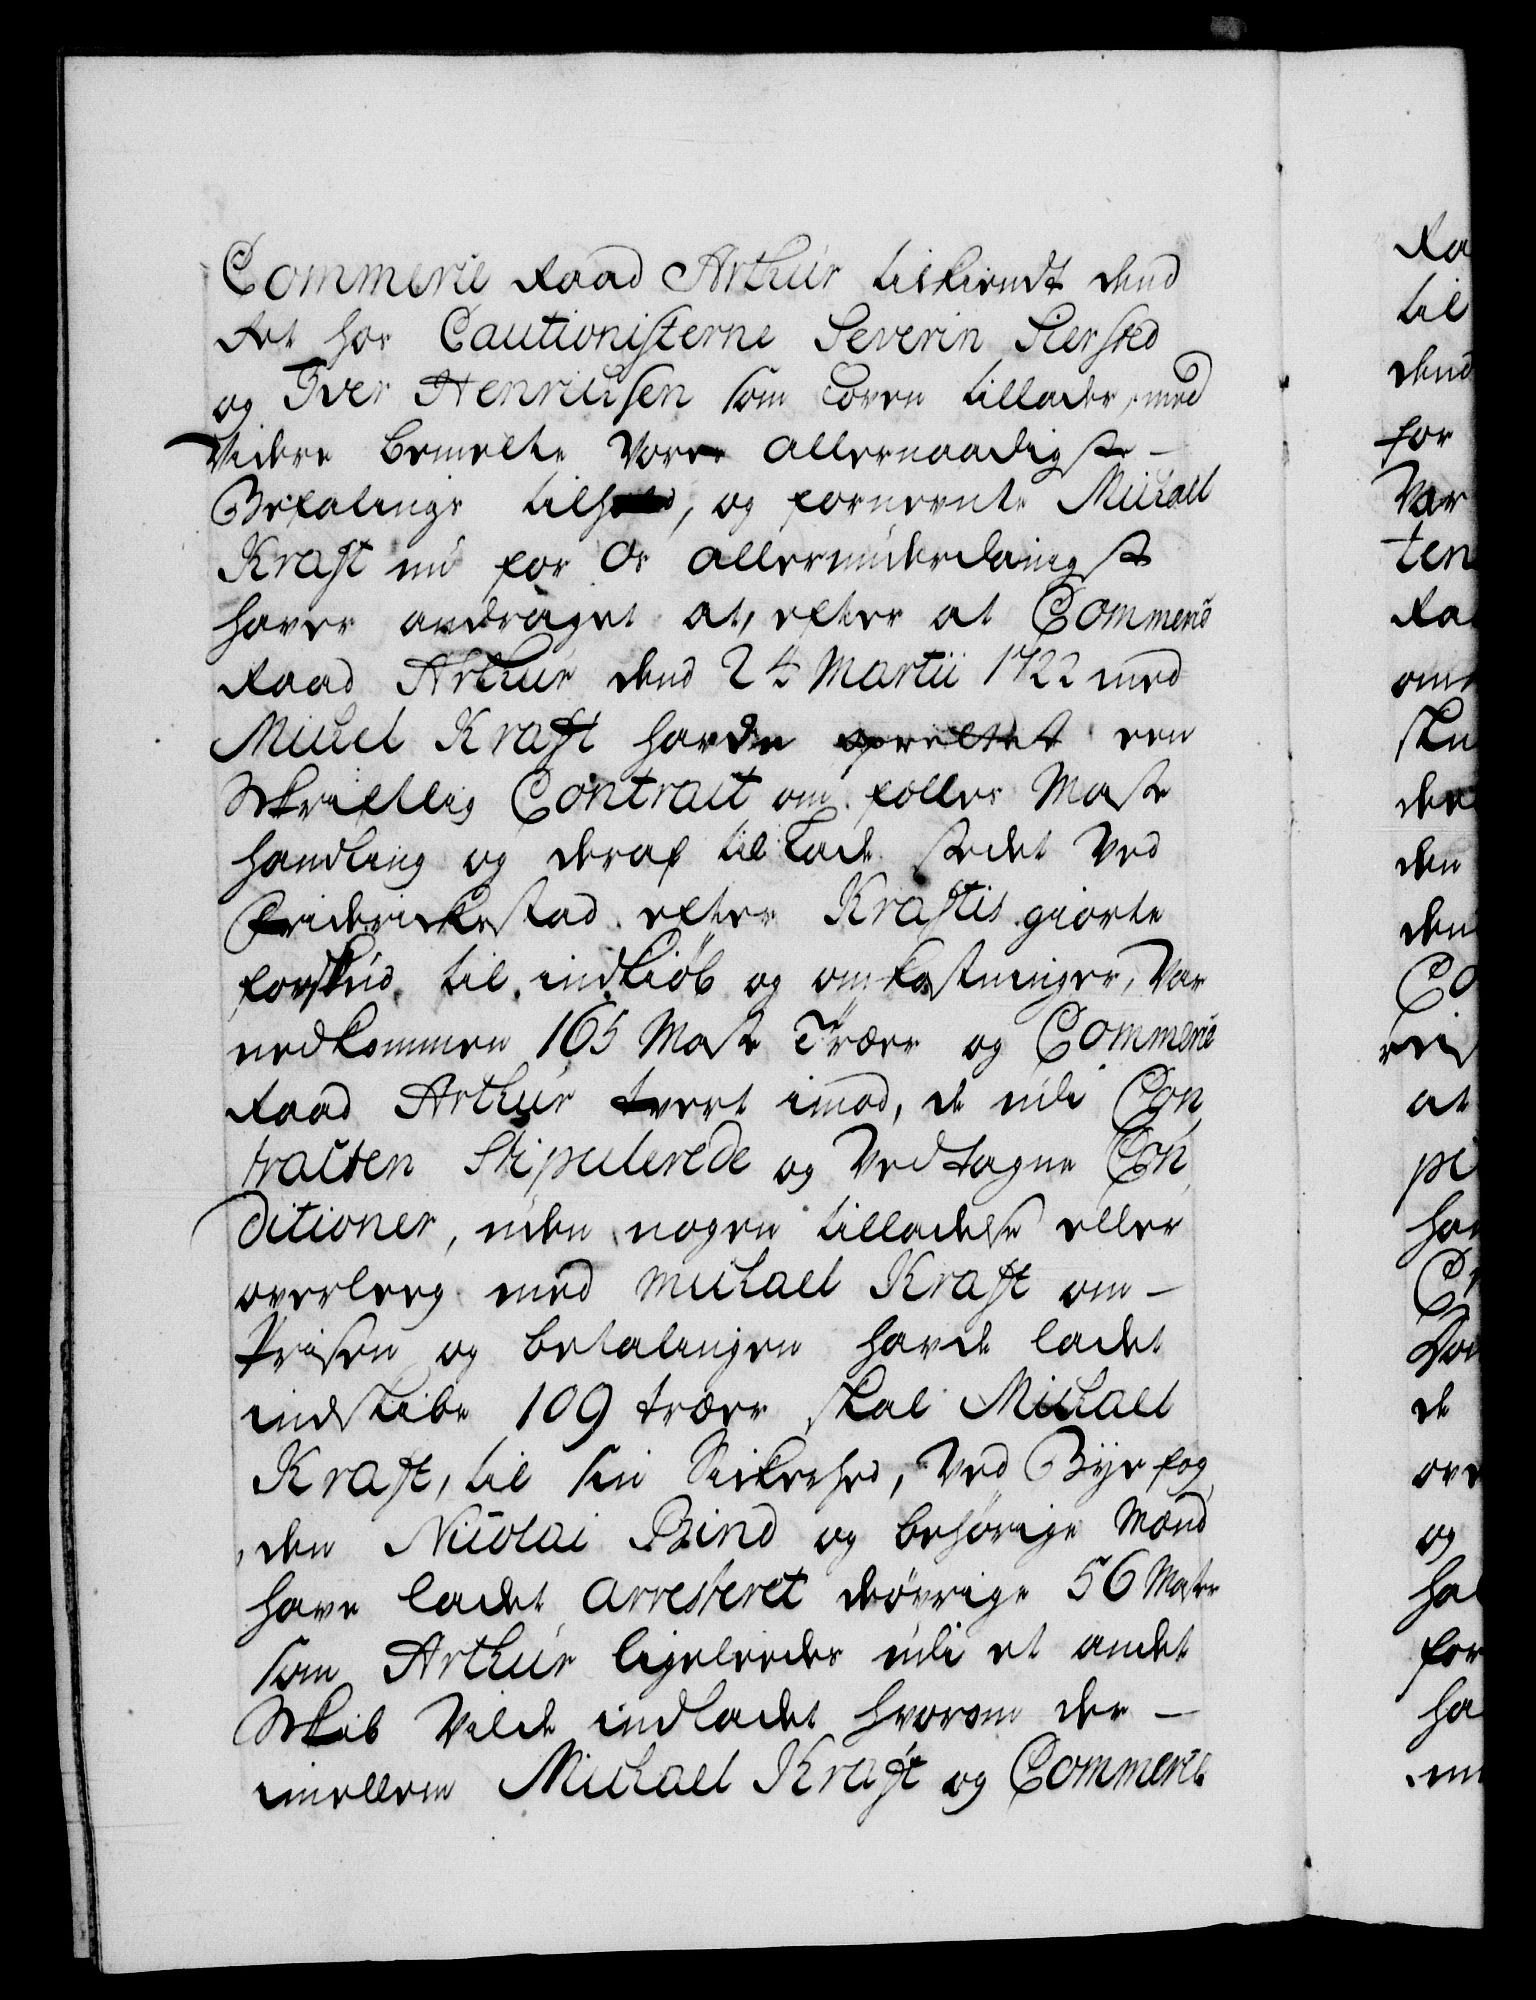 Commerce Raad Arthur tilkiendt dend
Ret hos Cautionisterne Severin Siersted
og Iver Henrichsen som Loven tillader, med
Videre bemelte Vores allernaadigste
Befalings tilhold, og fornevnte Michael
Kraft nu for Os allerunderdanigst
haver andraget at, efter at Commerce
Raad Arthur dend 24 Martii 1722 med
Michel Kraft hafde oprettet een
Skriftlig Contract om felles Maste
handling og deraf til Lade stedet Ved
Friderichstad efter Kraftis giorte
forskud til indkiøb og omkostninger, Var
nedkommen 165 Maste Træer og Commerce
Raad Arthur tvert imod, de udi Con
tracten Stipulerede og Vedtagne Con
ditioner, uden nogen tilladelse eller
overleg med Michael Kraft om
Prisen og betalingen hafde ladet
indskibe 109 træer skal Michael
Kraft, til sin Sikerhed, Ved Bye fog
den Nicolai Bind og behørige Mænd
have ladet arresteret deøvrige 56 Master
som Arthur ligeleedes udi et andet
Skib Vilde indladet hvorom der
imellem Michael Kraft og Commerce
Ra
til
dend
for
Var
ten
Raa
om
sku
der
den
den
Co
at
pi
ha
de
ove
og
ha
for
ha